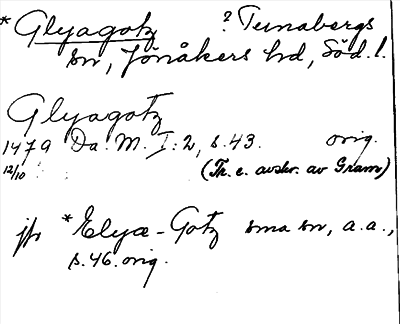 * Glyagotz ? Tunabergs
sn, Jönåkers hd, Söd.l.
Glyagotz
1479 Da. M. I:2, s.43. orig.
12/10 (Tr. e. avskr. av Gram)
jfr *Elyæ-Gotz sma sn, a.a.,
s.46. orig.